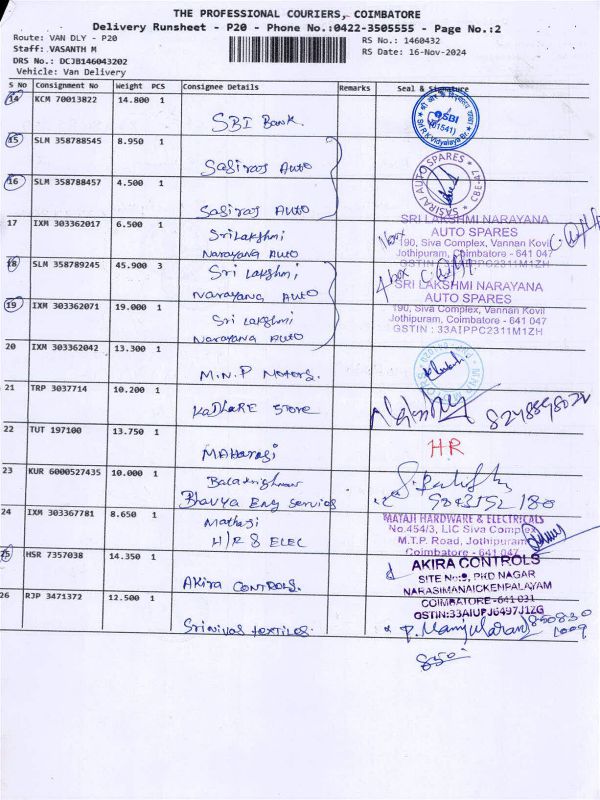 THE PROFESSIONAL COURIERS, COIMBATORE
Delivery Runsheet - P20 - Phone No.:0422-3505555 - Page No.:2
Route: VAN DLY - P20
RS No.: 1460432
Staff: VASANTH M
RS Date: 16-Nov-2024
DRS No.: DCJB146043202
Vehicle: Van Delivery
S No Consignment No Weight PCS Consignee Details Remarks Seal & Signature
14 KCM 70013822 14.800 1
SBI Bank.
SBI
(01541)
15 SLM 358788545 8.950 1
Sasiraj Auto
SASIRAJ AUTO SPARES
16 SLM 358788457 4.500 1
Sasiraj Auto
17 IXM 303362017 6.500 1
Sri Lakshmi
Narayana Auto
SRI LAKSHMI NARAYANA
AUTO SPARES
190, Siva Complex, Vannan Kovil
Jothipuram, Coimbatore - 641 047
GSTIN : 33AIPPC2311M1ZH
1 box
18 SLM 358789245 45.900 3
Sri Lakshmi
Narayana Auto
4 box
SRI LAKSHMI NARAYANA
AUTO SPARES
190, Siva Complex, Vannan Kovil
Jothipuram, Coimbatore - 641 047
GSTIN : 33AIPPC2311M1ZH
19 IXM 303362071 19.000 1
Sri Lakshmi
Narayana Auto
20 IXM 303362042 13.300 1
M.N.P Motors.
21 TRP 3037714 10.200 1
KaDhaRE Store
22 TUT 197100 13.750 1
MAHarasi
HR
23 KUR 6000527435 10.000 1
Balakrishnan
Bhavya Eng Services
24 IXM 303367781 8.650 1
Mathaji
H/R & ELEC
MATAJI HARDWARE & ELECTRICALS
No.454/3, LIC Siva Complex
M.T.P. Road, Jothipuram
Coimbatore - 641 047
25 HSR 7357038 14.350 1
Akira CONTROLS.
AKIRA CONTROLS
SITE No:9, PKD NAGAR
NARASIMANAICKENPALAYAM
COIMBATORE-641 031
GSTIN:33AIUPJ6497J1ZG
26 RJP 3471372 12.500 1
Srinivas textiles.
850-